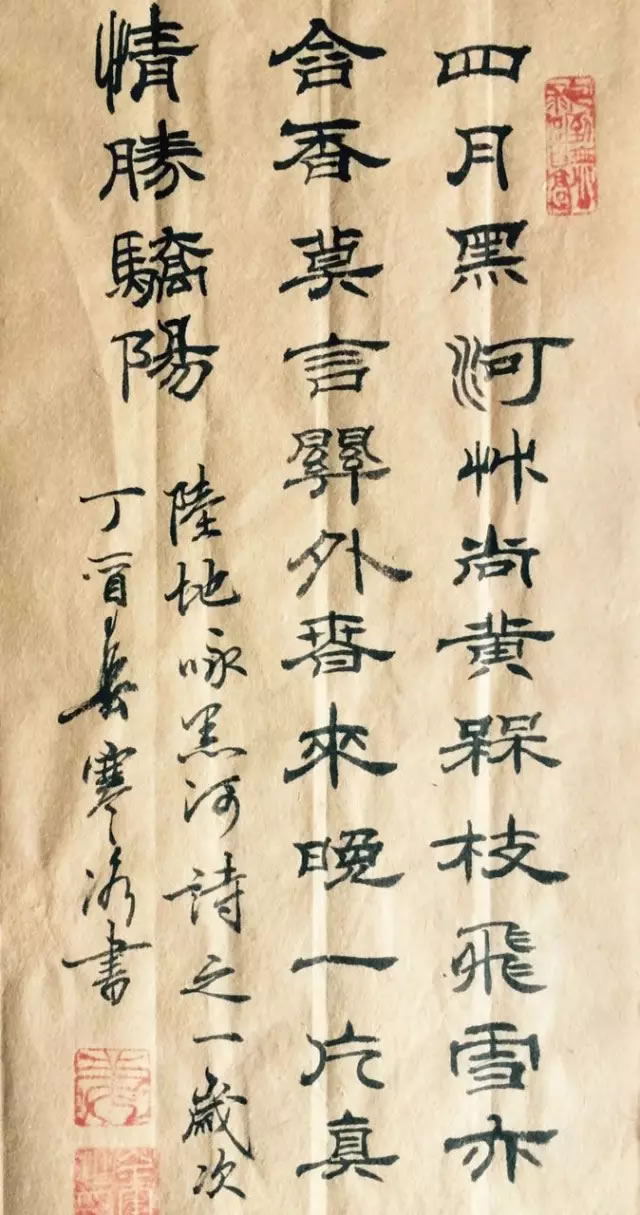 四月黑河艸尚黄槑枝飛雪亦
含香莫言關外春來晚一片真
情勝驕陽
陸地咏黑河詩之一歲次
丁酉春寒書